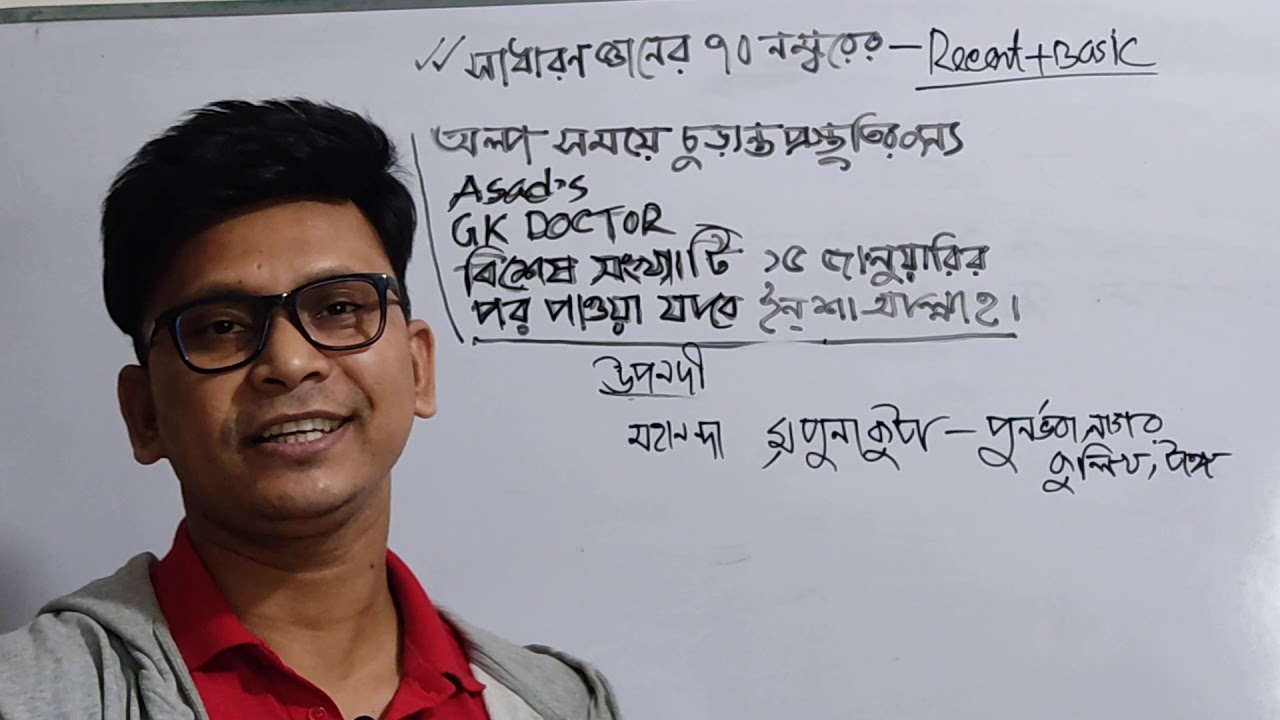 সাধারণ জ্ঞানের ৭০ নম্বরের – Recent + Basic
অল্প সময়ে চুড়ান্ত প্রস্তুতির জন্য
Asad's
GK DOCTOR
বিশেষ সংখ্যাটি ১৫ জানুয়ারির
পর পাওয়া যাবে ইনশাআল্লাহ।
উপনদী
মহানন্দা – পুনর্ভবা নাগর
কুলিখ,